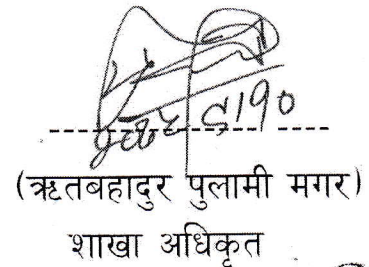 (ऋतबहादुर पुलामी मगर)
शाखा अधिकृत